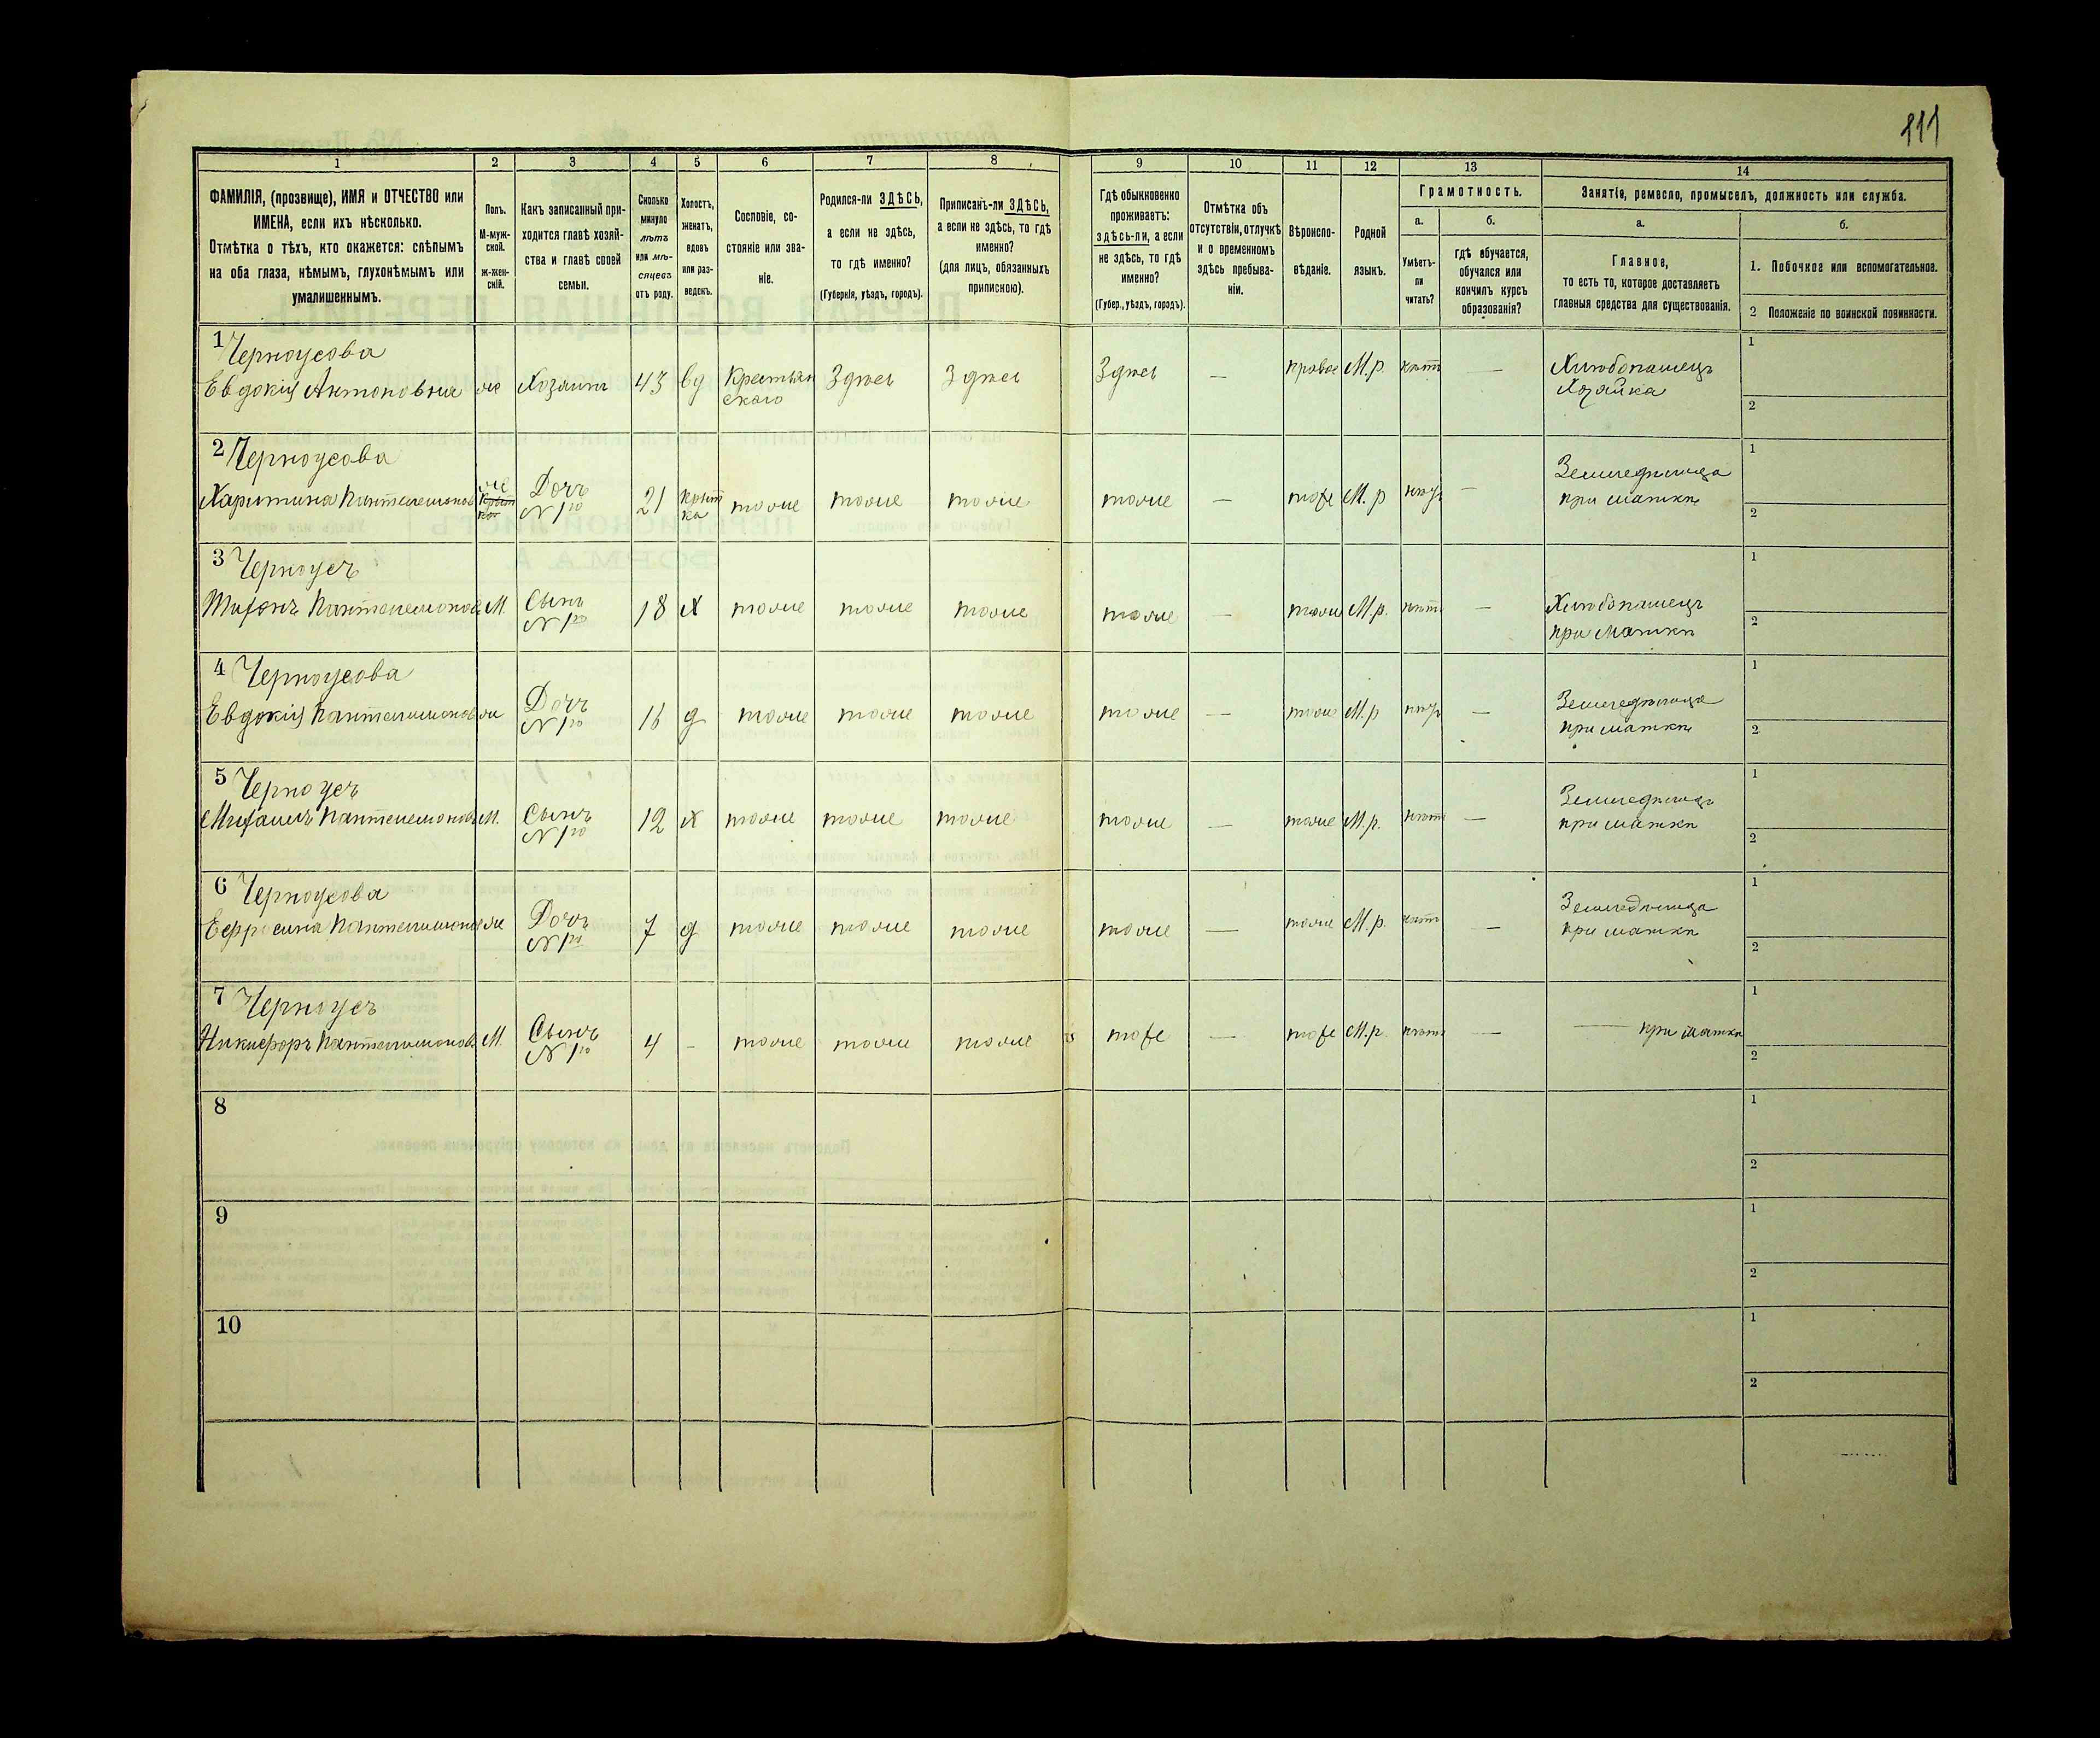 111
1 2 3 4 5 6 7 8 9 10 11 12 13 14
ФАМИЛІЯ, (прозвище), ИМЯ и ОТЧЕСТВО или
ИМЕНА, если ихъ нѣсколько.
Отмѣтка о тѣхъ, кто окажется: слѣпымъ
на оба глаза, нѣмымъ, глухонѣмымъ или
умалишеннымъ.
Полъ.
М-муж-
ской.
ж-жен-
скій.
Какъ записанный при-
ходится главѣ хозяй-
ства и главѣ своей
семьи.
Сколько
минуло
лѣтъ
или мѣ-
сяцевъ
отъ роду.
Холостъ,
женатъ,
вдовъ
или раз-
веденъ.
Сословіе, со-
стояніе или зва-
ніе.
Родился-ли ЗДѢСЬ,
а если не здѣсь,
то гдѣ именно?
(Губернія, уѣздъ, городъ).
Приписанъ-ли ЗДѢСЬ,
а если не здѣсь, то гдѣ
именно?
(для лицъ, обязанныхъ
припискою).
Гдѣ обыкновенно
проживаетъ:
здѣсь-ли, а если
не здѣсь, то гдѣ
именно?
(Губер., уѣздъ, городъ).
Отмѣтка объ
отсутствіи, отлучкѣ
и о временномъ
здѣсь пребыва-
ніи.
Вѣроиспо-
вѣданіе.
Родной
языкъ.
Грамотность.
а.
Умѣетъ-
ли
читать?
б.
гдѣ обучается,
обучался или
кончилъ курсъ
образованія?
Занятіе, ремесло, промыселъ, должность или служба.
а.
Главное,
то есть то, которое доставляетъ
главныя средства для существованія.
б.
1. Побочное или вспомогательное.
2 Положеніе по воинской повинности.
1 Черноусова
Евдокія Антоновна ж Хозяинъ 43 вд Крестьян
скаго
Здѣсь Здѣсь Здѣсь — правос М.р. нѣтъ — Хлѣбопашецъ
Хозяйка
1
2
2 Черноусова
Харитина Пантелемонов ж Дочь
№ 1го
21 тоже тоже тоже тоже — тоже М.р — Земледѣлица
при маткѣ
1
2
3 Черноусъ
Пантелемонов М. Сынъ
№ 1го
18 Х тоже тоже тоже тоже — тоже М.р. нѣтъ — Хлѣбопашецъ
при маткѣ
1
2
4 Черноусова
Евдокія Пантелимонов ж Дочь
№ 1го
16 д тоже тоже тоже тоже — тоже М.р — Земледѣлица
при маткѣ
1
2
5 Черноусъ
Пантелемоновъ М. Сынъ
№ 1го
12 Х тоже тоже тоже тоже — тоже М.р. нѣтъ —
при маткѣ
1
2
6 Черноусова
Ефросина Пантелимонов ж Дочь
№ 1го
7 д тоже тоже тоже тоже — тоже М.р. нѣтъ — Земледѣлица
при маткѣ
1
2
7 Черноусъ
Никифоръ Пантелимоновъ М. Сынъ
№ 1го
4 - тоже тоже тоже тоже — тоже М.р. нѣтъ — — при маткѣ
1
2
8
1
2
9
1
2
10
1
2